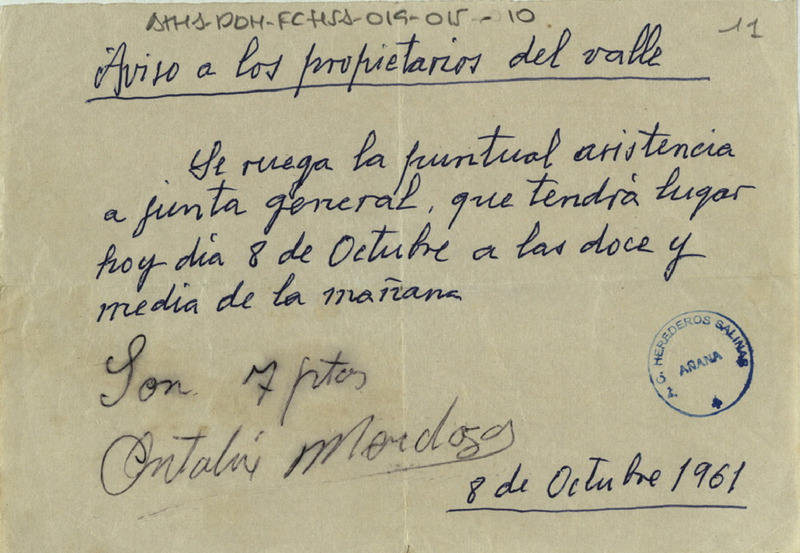 ATHA-DDH-FCHSA-019-015-10.
11
Aviso a los propietarios del valle
Se ruega la puntual asistencia
a junta general, que tendrá lugar
hoy dia 8 de Octubre a las doce y
media de la mañana
HEREDEROS SALINAS
AÑANA
Son 7 ptas
Mendoza
8 de Octubre 1961